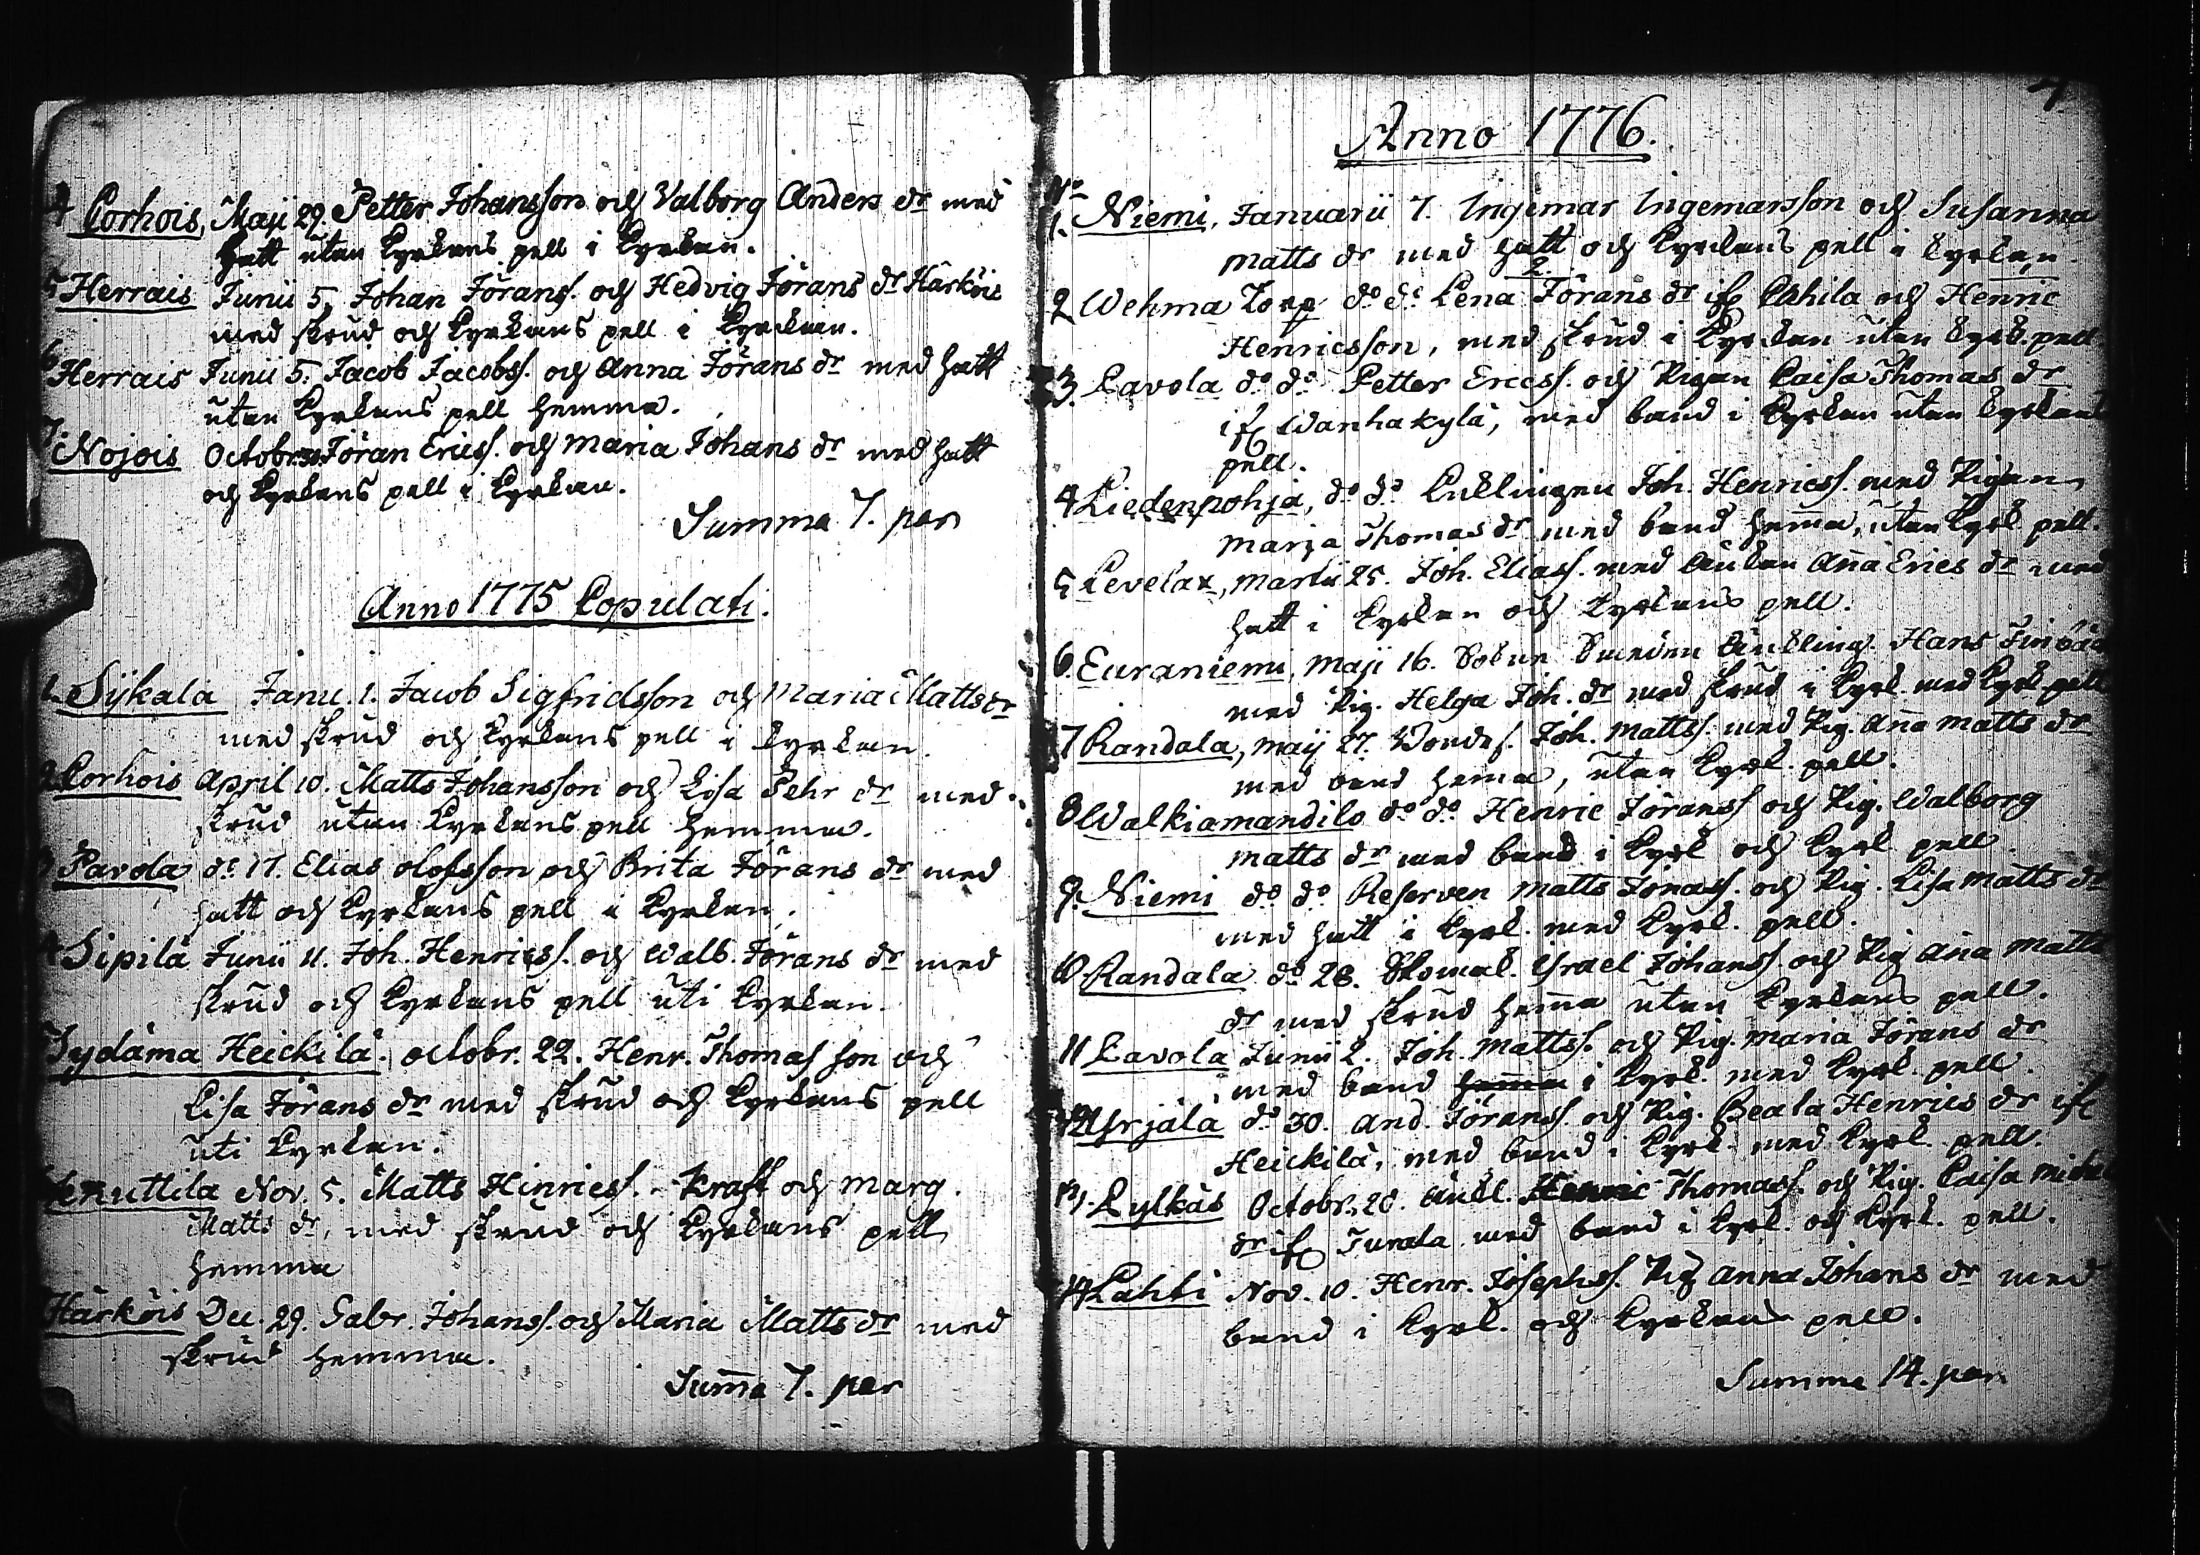 4 Corhois, Maji 29. Petter Johansson och Valborg Anders dr med
hatt utan kyrkans pell i kyrkan.
5 Herrais Junii 5. Johan Jörans. och Hedvig Jörans dr Härköis
med skrud och kyrkans pell i kyrckan.
6 Herrais Junii 5. Jacob Jacobs. och Anna Jörans dr med hatt
utan kyrkans pell hemma.
7. Nojois Octobr. Jöran Erics. och Maria Johans dr med hatt
och kyrkans pell i kyrkan.
Summa 7. par
Anno 1775 Copulati.
1. Sÿkala Janu. 1. Jacob Sigfridsson och Maria Matts dr
med skrud och kyrkans pell i kyrkan.
2. Corhois April 10. Matts Johansson och Lisa Pehr dr med
skrud utan kyrkans pell hemma.
3 Pavola do 17. Elias Olofsson och Brita Jörans dr med
hatt och kyrkans pell i kyrkan.
4 Sipilä Junii 11. Joh. Henricss. och Walb. Jörans dr med
skrud och kyrkans pell uti kyrkan.
Sydäma Heickilä. octobr. 22. Henr. Thomasson och
Lisa Jörans dr med skrud och kyrkans pell
uti kyrkan.
Knuttila Nov. 5. Matts Hinricss. Kraft och Marg.
Matts dr, med skrud och kyrkans pell
hemma
Härköis Dec. 29. Gabr. Johanss. och Maria Matts dr med
skrud hemma.
Suma 7. par
7
Anno 1776.
No
1. Niemi, Januarii 7. Ingemar Ingemarsson och Susanna
Matts dr med hatt och kyrckans pell i kyrkan
2 Wehma Torp do do Lena Jörans dr ifr Cahila och Henric
Henricsson, med skrud i kyrkan utan kyrk. pell
3. Cavola do do Petter Ericss. och Pigan Caisa Thomas dr
ifr Wanhakylä, med band i kyrkan utan kyrkans
pell.
4 Liedenpohja, do do Enklingen Joh. Henricss. med Pigan
Marja Thomas dr med band hema, utan kyrk pell.
5 Levelax, Martii 25. Joh. Eliass. med Änkan Aña Erics dr med
hatt i kyrkan och kyrkans pell.
6. Euraniemi, Maji 16. Enkling. Hans
med Pig. Helga Joh. dr med skrud i kyrk. med kyrk pell
7 Randala, Maij 27. Joh. Mattss. med Pig. Aña Matts dr
med band hema, utan kyrk. pell.
8 Walkiamandilo do do Henric Jöranss och Pig. Walborg
Matts dr med band i kyrk och kyrk pell
9. Niemi do do Reserven Matts Jönass. och Pig. Lisa Matts dr
med hatt i kyrk. med kyrk. pell.
10 Randala do 28. Israel Johanss. och Pig Aña Matts
dr med skrud hema utan kyrkans pell.
11 Cavola Junii 2. Joh. Mattss. och Pig. Maria Jörans dr
med band hema i kyrk. med kyrk. pell.
12 Yrjälä do 30. And. Jöranss. och Pig. Beata Henrics dr ifr
Heickilä, med band i kyrk. med kyrk. pell.
13. Kylkäs Octobr. 28. Enkl. Henric Thomass. och Pig. Caisa
dr ifr Turala med band i kyrk. och kyrk. pell.
14 Lahti Nov. 10. Henr. Josephss. Pig Anna Johans dr med
band i kyrk. och kyrkans pell.
Summa 14. par